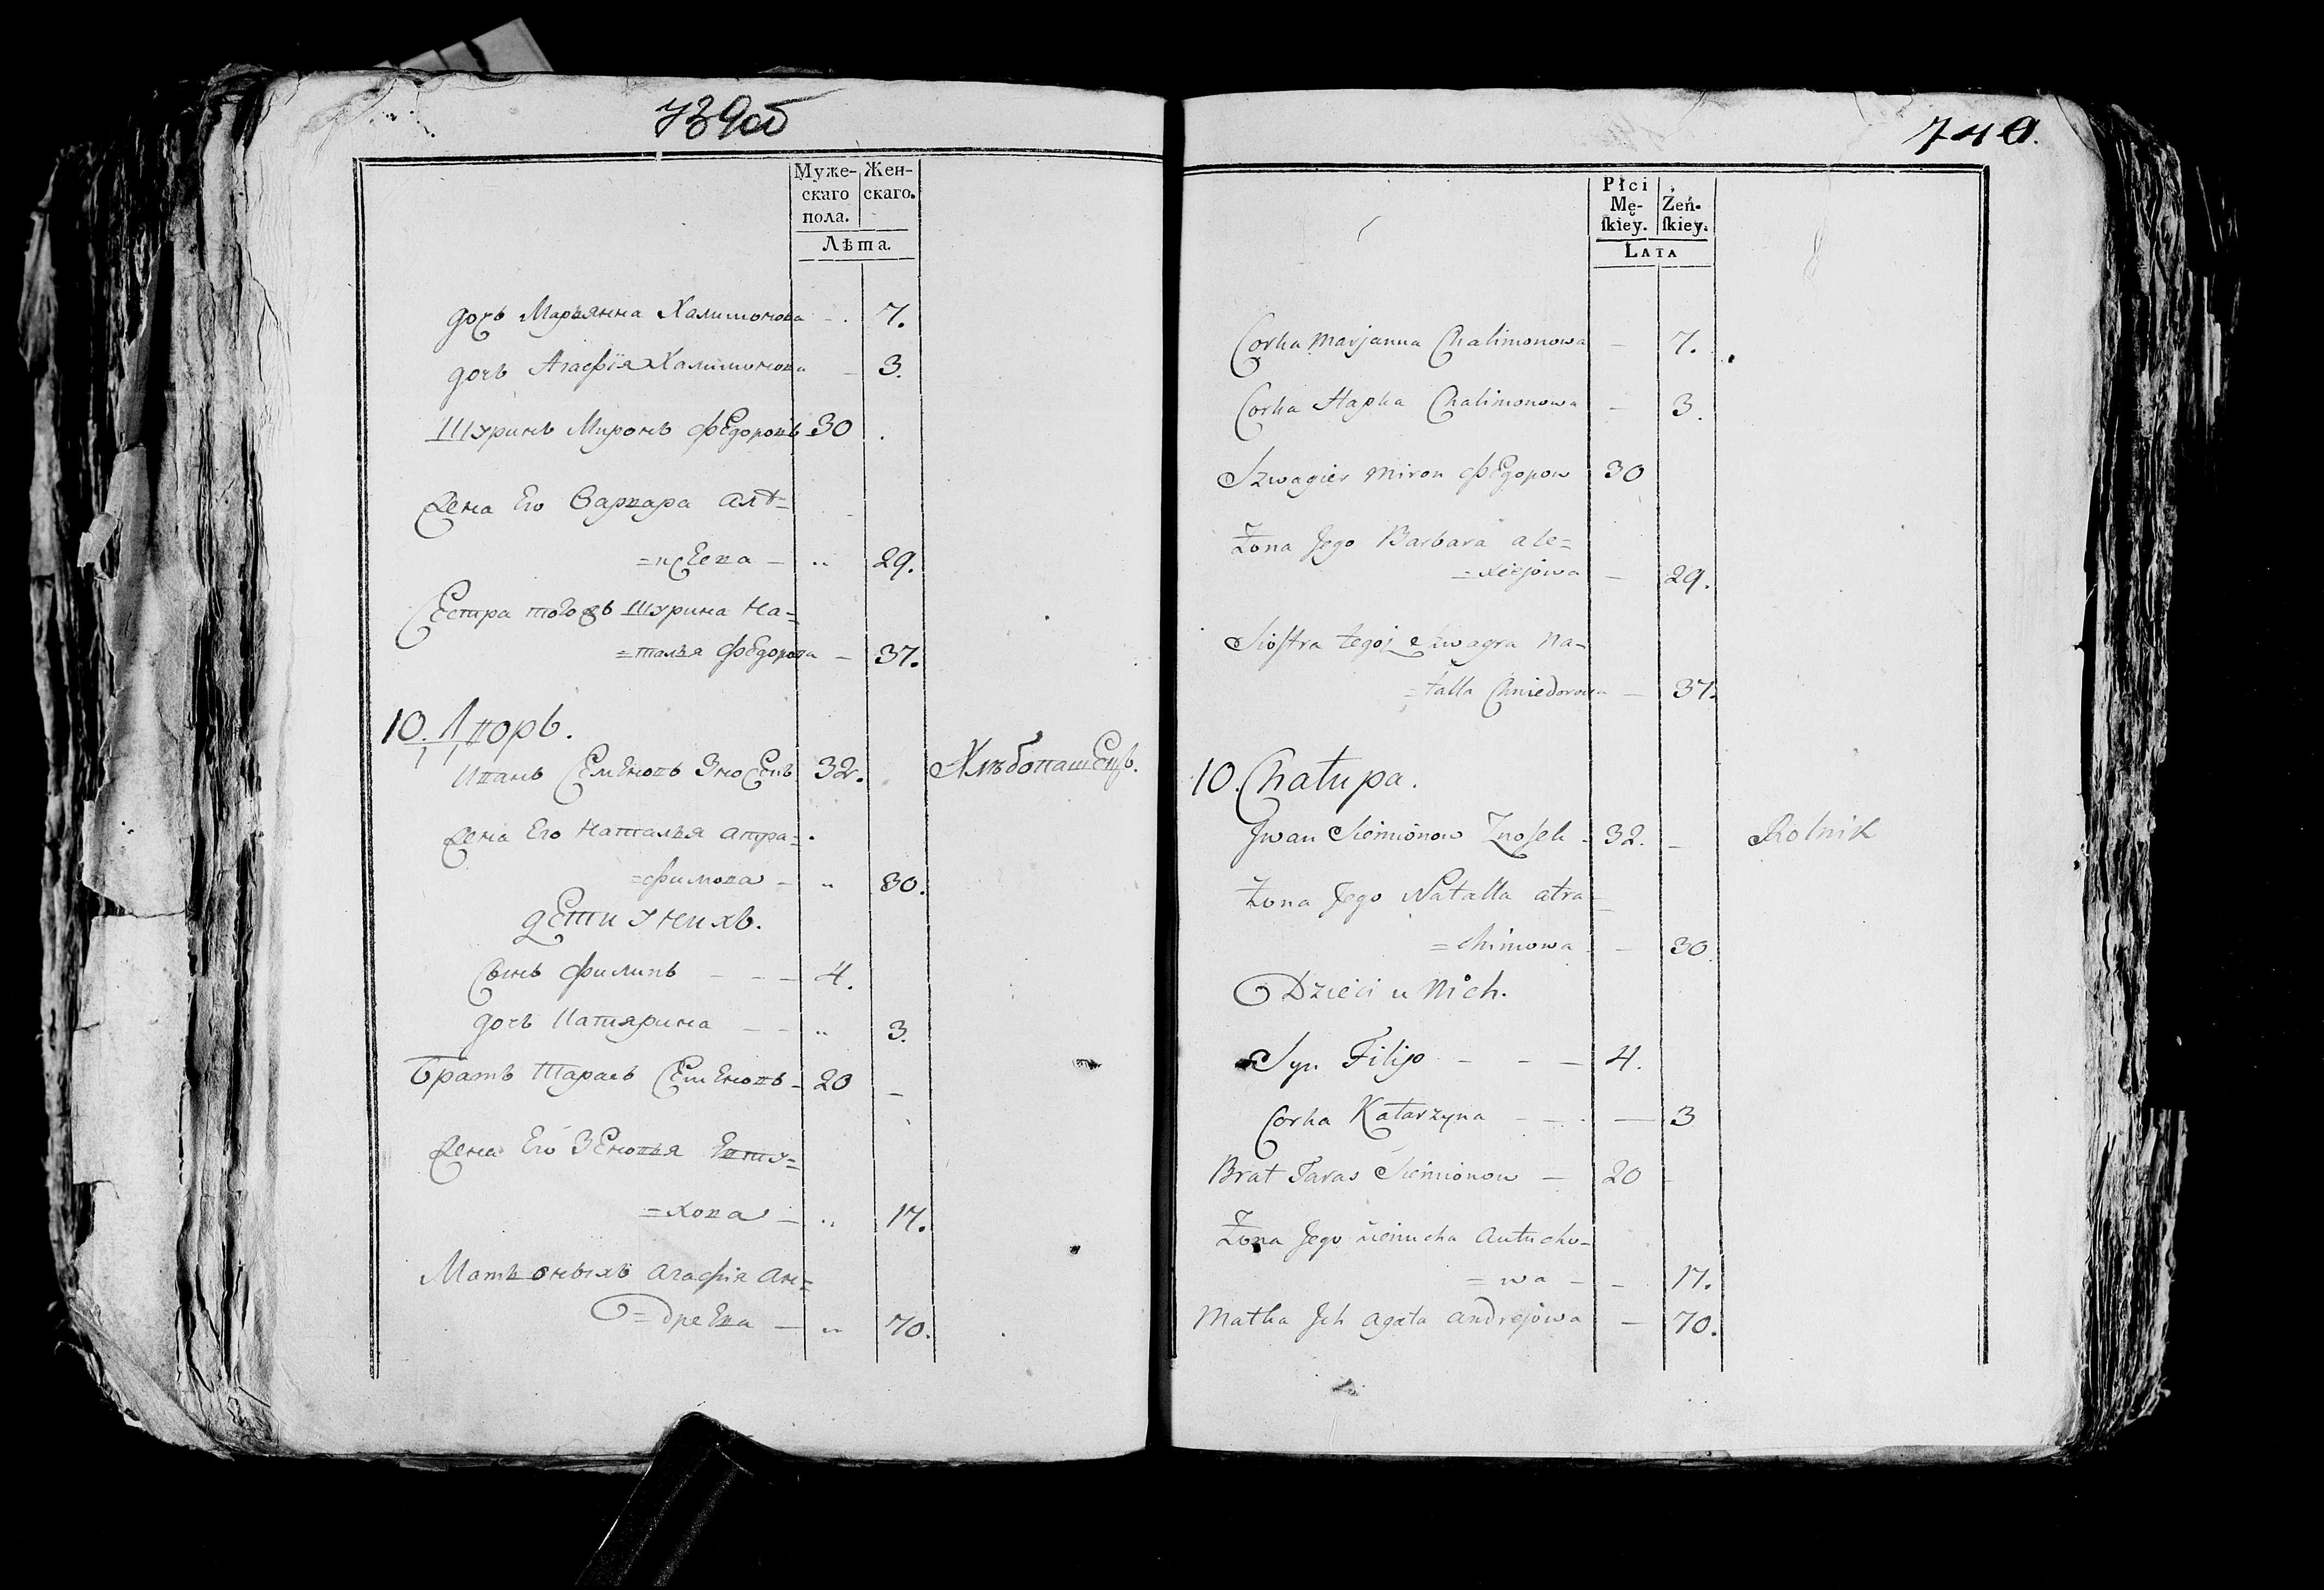 739об
Муже- Жен-
скаго скаго.
пола.
Лѣта.
дочь Марьянна Халимонова - . 7.
дочь Агафія Халимонова - 3.
Шуринъ Миронъ Федоровъ 30 .
Жена Его Варвара Але=
=ксѣева - " 29.
Сестра тогожъ Шурина На=
=талья Федорова - 37.
10. Дворъ.
Иванъ Семеновъ Зносекъ 32. Хлѣбопашецъ.
Жена Его Наталья Атра=
=фимова - " 30.
дети у нихъ.
Сынъ Филипъ - - - 4.
дочь Катярина - - " 3.
Братъ Тарасъ Семеновъ - 20 -
Жена Его Зеновья Евту=
=хова - " 17.
Мать оныхъ Агафія Ан=
=дреева - " 70.
740.
Płci Żeń-
Mę- ſkiey.
ſkiey.
Lata
Corka Marjanna Chalimonowa - 7.
Corka Hapka Chalimonowa - 3.
Szwagier Miron Федоров 30
Żona Jego Barbara Ale=
=xiejowa - 29.
Siostra tegoż szwagra Na=
=talla Chwiedorowa - 37.
10. Chatupa.
Jwan Siemionow Znosek - 32. - Rolnik
Żona Jego Natalla Atra=
=chimowa - 30.
Dzieci u Nich.
Syn Filip - - - 4.
Corka Katarzyna - - - 3
Brat Taras Siemionow - 20 -
Żona Jego Zienucha Autucho=
=wa - - 17.
Matka Jch Agata Andrejowa - 70.